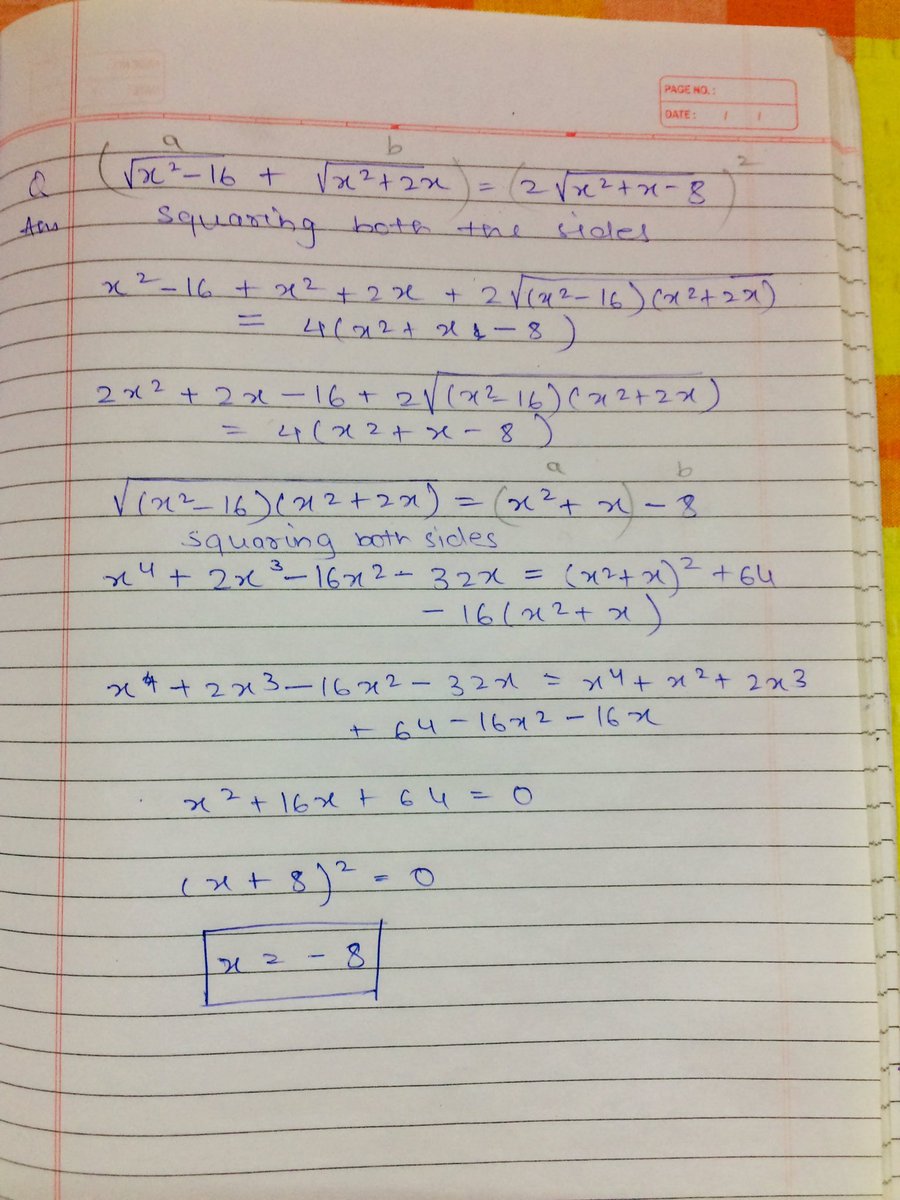 PAGE NO.:
DATE: / /
a b
Q (√x²-16 + √x²+2x) = (2√x²+x-8)²
Ans squaring both the sides
x²-16 + x² + 2x + 2√(x²-16)(x²+2x)
= 4(x²+x-8)
2x² + 2x - 16 + 2√(x²-16)(x²+2x)
= 4(x²+x-8)
a b
√(x²-16)(x²+2x) = (x²+x)-8
squaring both sides
x⁴ + 2x³-16x²-32x = (x²+x)²+64
-16(x²+x)
x⁴+2x³-16x²-32x = x⁴+x²+2x³
+ 64-16x²-16x
x²+16x+64 = 0
(x+8)² = 0
x = -8